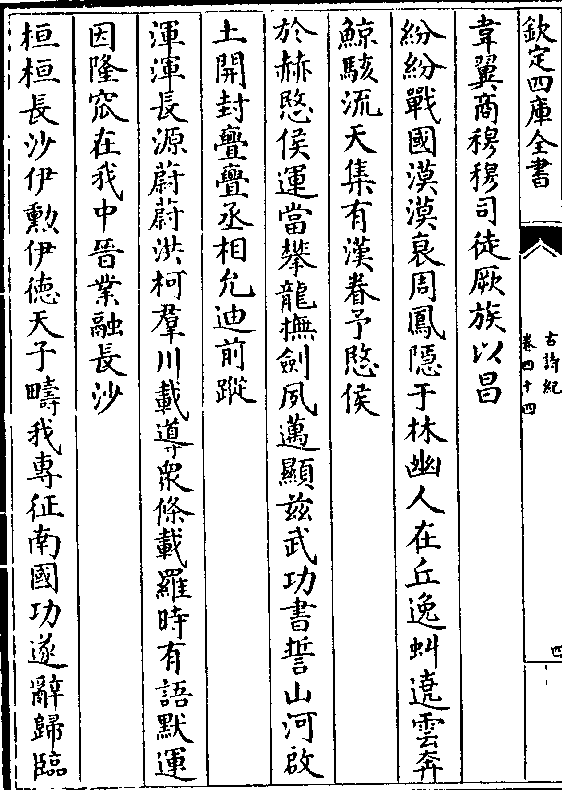 欽定四庫全書
古詩紀
卷四十四
四
韋翼商穆穆司徒厥族以昌
紛紛戰國漠漠衰周鳳隱于林幽人在丘逸虯遶雲奔
鯨駭流天集有漢眷予愍侯
於赫愍侯運當攀龍撫劍夙邁顯兹武功書誓山河啟
土開封亹亹丞相允迪前蹤
渾渾長源蔚蔚洪柯羣川載導衆條載羅時有語默運
因隆窊在我中晉業融長沙
桓桓長沙伊勲伊徳天子疇我專征南國功遂辭歸臨